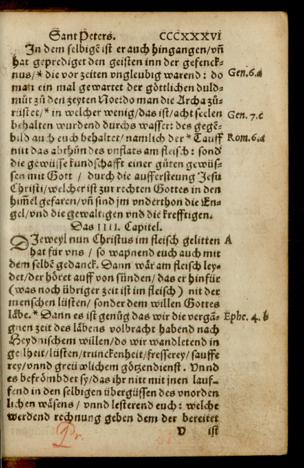 Sant Peters. CCCXXXVI
In dem selbigē ist er auch hingangen/ vñ
hat geprediget den geisten inn der gefenck-
nus/* die vor zeiten vngleubig warend: do Gen.6.a
man ein mal gewartet der göttlichen duld-
mût zů den zeyten Noe: do man die Archa zů-
rüstet/* in welcher wenig/ das ist/ acht seelen Gen. 7.c
behalten wurdend durchs wasser: des gegē-
bild auch euch behaltet/ namlich der * Tauff Rom.6.a
nit das abthůn des vnflats am fleisch: sond̄
die gewüsse kundschafft einer gůten gewüß-
sen mit Gott / durch die aufferstteung Jesu
Christi/ welcher ist zur rechten Gottes in den
himel gefaren/ vñ sind jm vnderthon die En-
gel/ vnd die gewaltigen vnd die krefftigen.
Das IIII. Capitel.
DJeweyl nun Christus im fleisch gelitten A
hat für vns / so wapnend euch auch mit
dem selbē gedanck. Dann wär am fleisch ley-
det/ der höret auff von sünden/ das er hinfür
(was noch übriger zeit ist im fleisch ) nit der
menschen lüsten/ sonder dem willen Gottes
läbe.* Dann es ist genůg das wir die vergā- Ephe. 4.b
gnen zeit des läbens volbracht habend nach
Heydnischem willen/ do wir wandletend in
geilheit/ lüsten/ trunckenheit/ fresserey/ sauffe
rey/ vnnd greüwlichem götzendienst. Vnnd
es befrömbdet sy/ das ihr nitt mit jnen lauf-
fend in den selbigen übergüssen des vnorden
lichen wäsens / vnnd lesterend euch: welche
werdend rechnung geben dem der bereitet
V ist